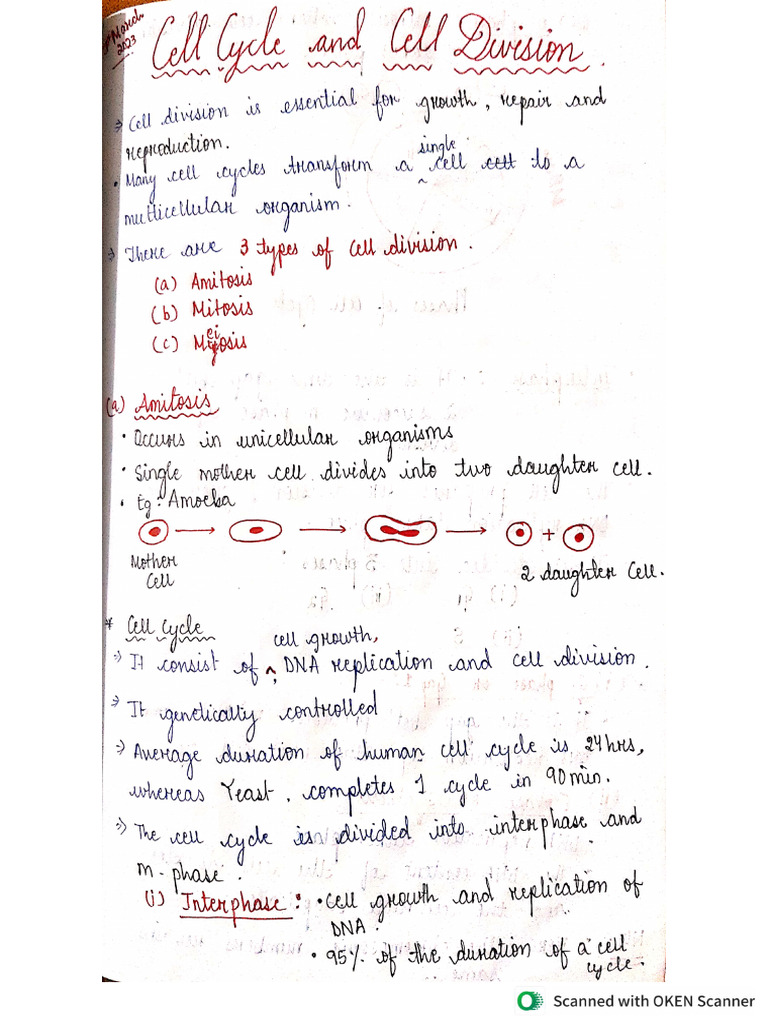 March
2023
Cell Cycle and Cell Division.
⇒ Cell division is essential for growth, repair and
reproduction.
• Many cell cycles transform a single cell to a
multicellular organism.
⇒ There are 3 types of cell division.
(a) Amitosis
(b) Mitosis
(c) Meiosis
(a) Amitosis
• Occurs in unicellular organisms
• Single mother cell divides into two daughter cell.
• Eg: Amoeba
+
Mother
Cell
2 daughter Cell.
* Cell Cycle
⇒ It consist of cell growth, DNA replication and cell division.
⇒ It genetically controlled
⇒ Average duration of human cell cycle is 24hrs,
whereas Yeast, completes 1 cycle in 90 min.
⇒ The cell cycle is divided into interphase and
M-phase.
(i) Interphase: • Cell growth and replication of
DNA.
• 95% of the duration of a cell
cycle.
Scanned with OKEN Scanner